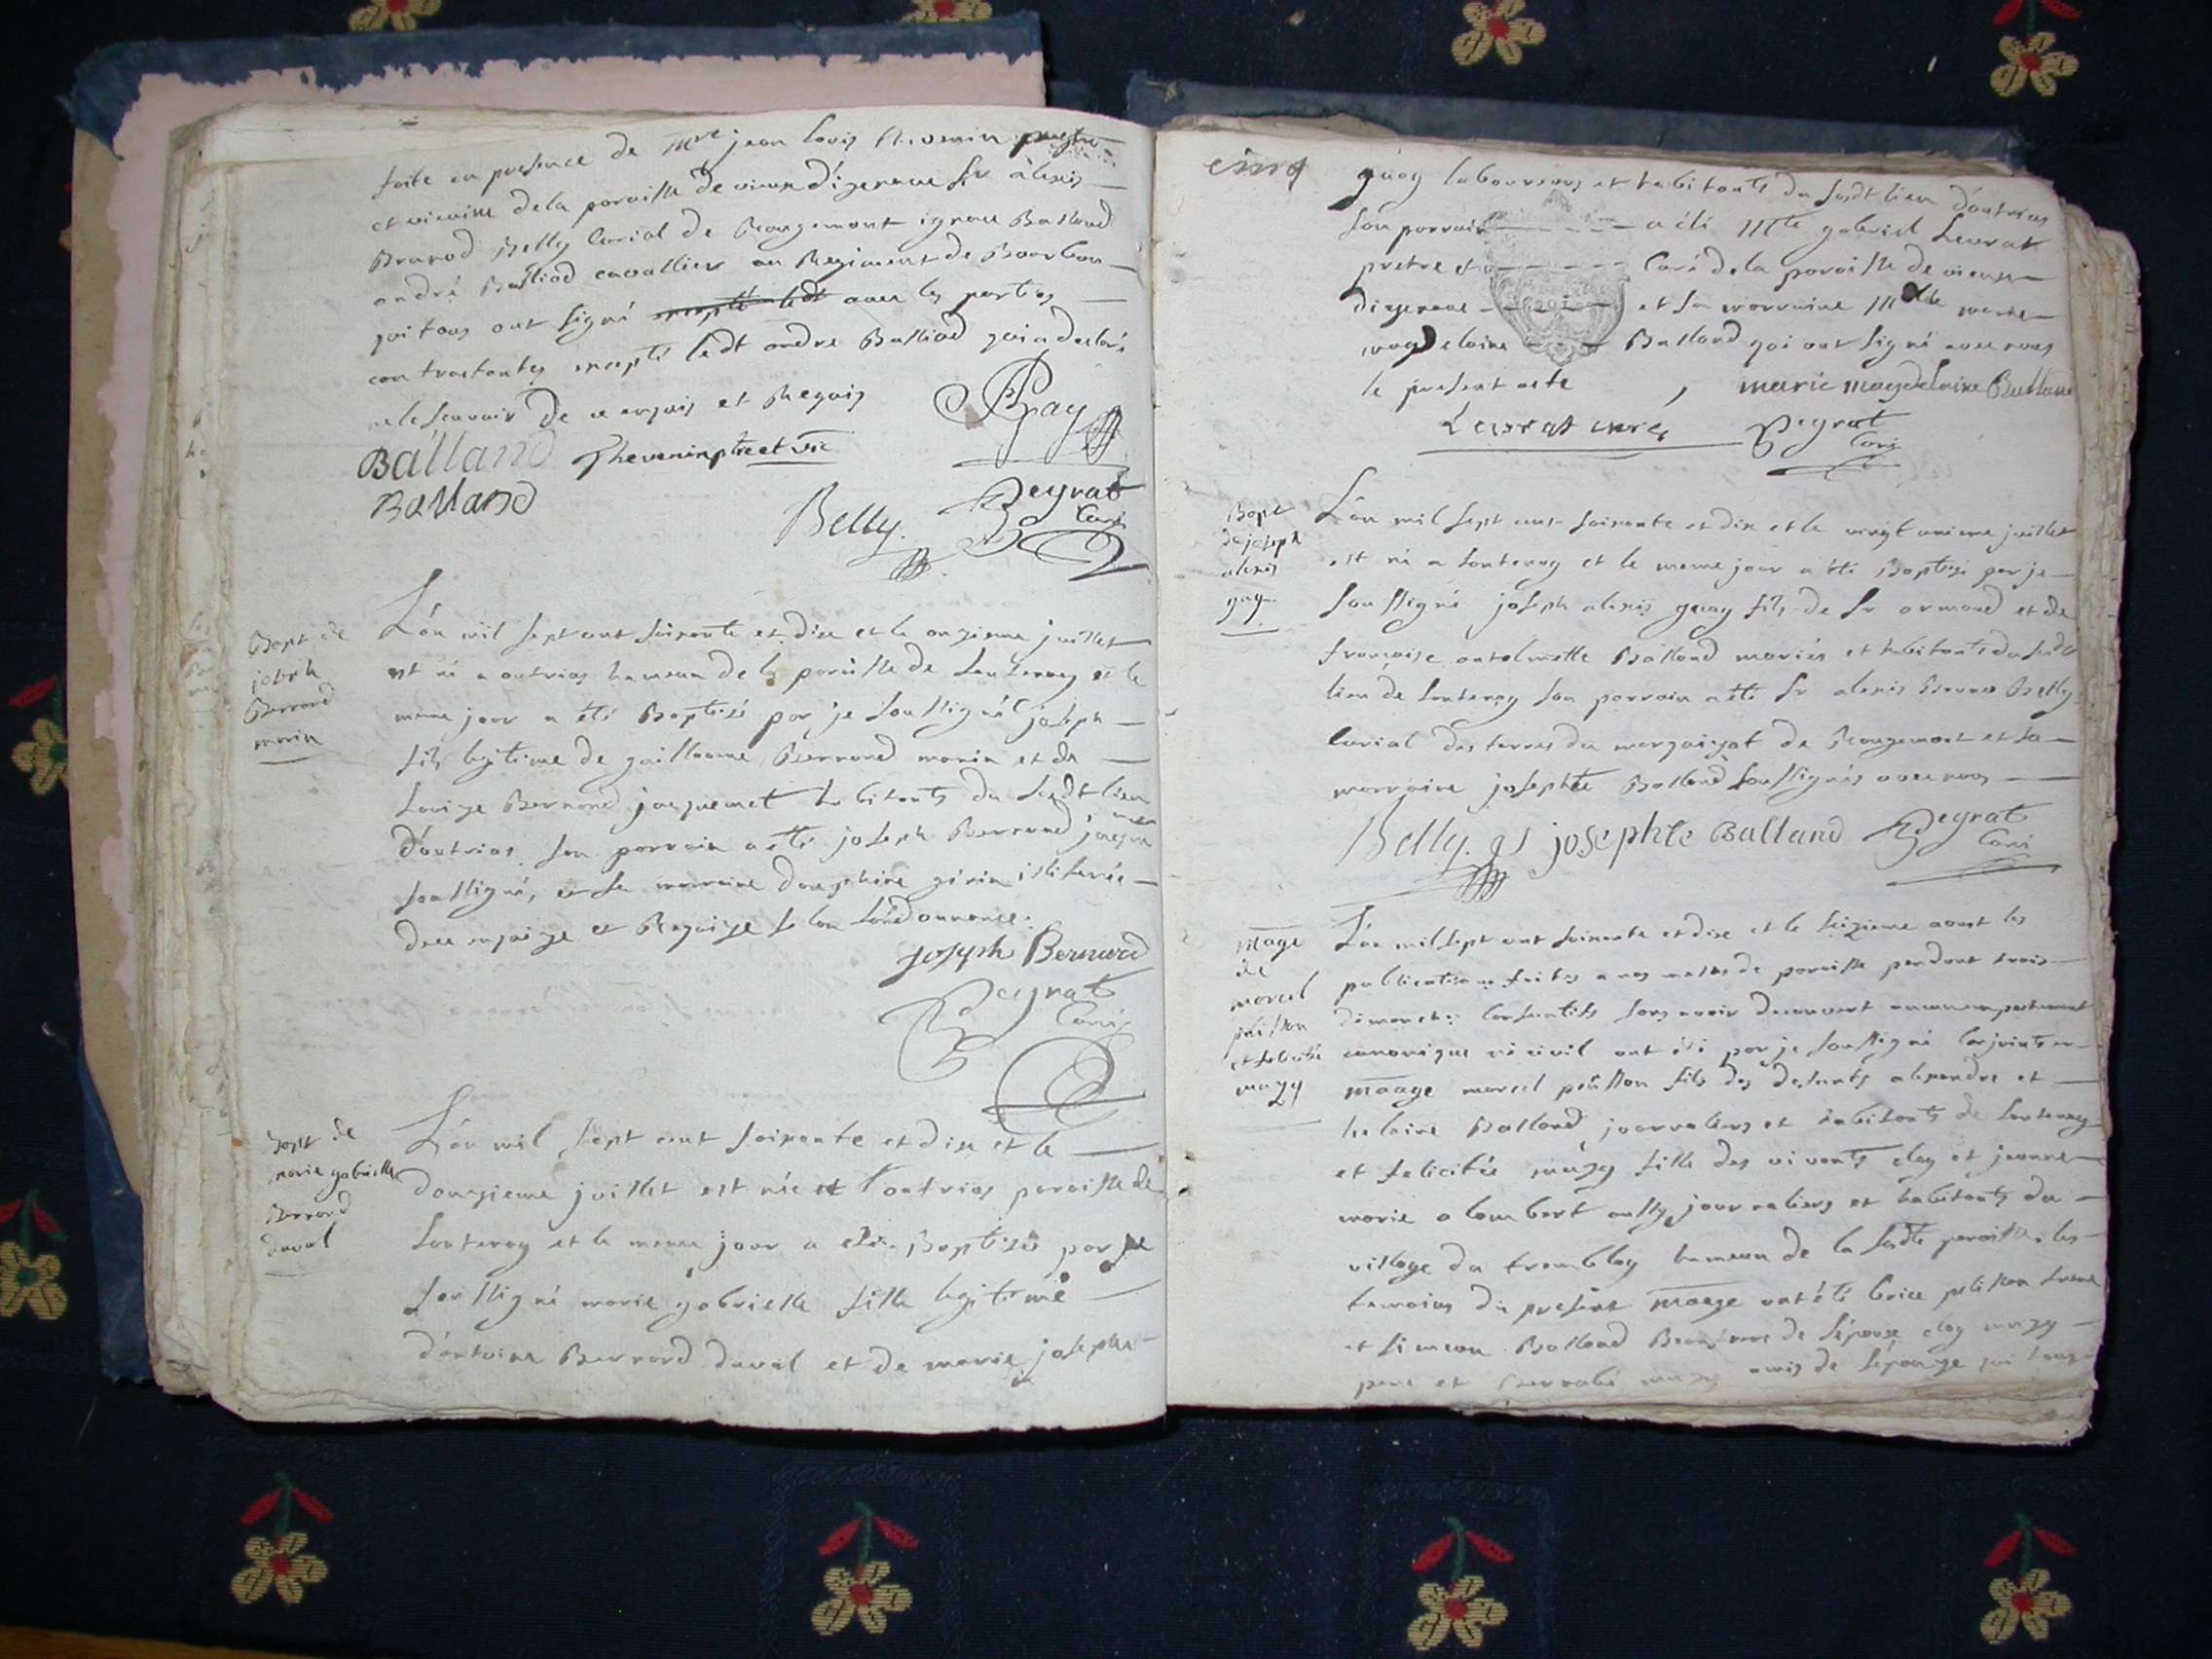 faite en presence de Mre jean louis thevenin prestre
et vicaire de la paroisse de vieux d'izenave Sr alexis
Brunod Belly curial de Rougemont ignace Balland
andré Balliod cavallier au Regiment de Bourbon
qui tous ont signé avec les parties
contractantes excepté ledt andre Balliod qui a declaré
ne le scavoir de ce enquis et Requis
Balland Thevenin ptre et vic
Balland
Belly. Peyrat
Curé
Bapt de
joseph
Bernard
morin
L'an mil sept cent soixante et dix et le onzieme juillet
est né a outrias hameau de la paroisse de lantenay et le
meme jour a été Baptisé par je soussigné joseph
fils legitime de guillaume Bernard morin et de
Louise Bernard jacquemet habitants du susdt lieu
d'outrias son parrain a été joseph Bernard
soussigné, et sa marraine illiterée
de ce enquise et Requise selon l'ordonnance.
joseph Bernard
Peyrat
Curé
Bapt de
marie gabrielle
Bernard
duval
L'an mil sept cent soixante et dix et le
douzieme juillet est née outrias paroisse de
lantenay et le meme jour a été Baptisée par je
soussigné marie gabrielle fille legitime
d'antoine Bernard duval et de marie josephe
cinq
guay laboureurs et habitants du susdt lieu d'outrias
son parrain a été gabriel Levrat
pretre et Curé de la paroisse de vieux
dizenave et sa marraine marie
magdelaine Balland qui ont signé avec nous
le present acte marie magdelaine Balland
Levrat curé Peyrat
Curé
Bapt
de joseph
alexis
guay
L'an mil sept cent soixante et dix et le vingt unieme juillet
est né a lantenay et le meme jour a été Baptisé par je
soussigné joseph alexis guay fils de Sr armand et de
françoise Balland mariés et habitants du susdt
lieu de lantenay son parrain a été Sr alexis Belly
curial des terres du marquisat de Rougemont et sa
marraine josephte Balland soussignés avec nous
Belly. josephte Balland Peyrat
Curé
mage
de
marcel
pelisson
et felicité
mugy
L'an mil sept cent soixante et dix et le seizieme aoust les
publications faites a nos messes de paroisse pendant trois
dimanches consecutifs sans avoir decouvert aucun empechement
canonique ni civil ont été par je soussigné conjoints en
maage marcel pelisson fils des defunts alexandre et
Balland journaliers et habitants de lantenay
et felicitée mugy fille des vivants eloy et jeanne
marie alombert aussy journaliers et habitants du
village du tremblay hameau de la susdte paroisse les
temoins du present maage ont été brice pelisson frere
et simeon Balland Beaufrere de l'epoux eloy mugy
pere et Bernabé mugy de l'epouse qui tous